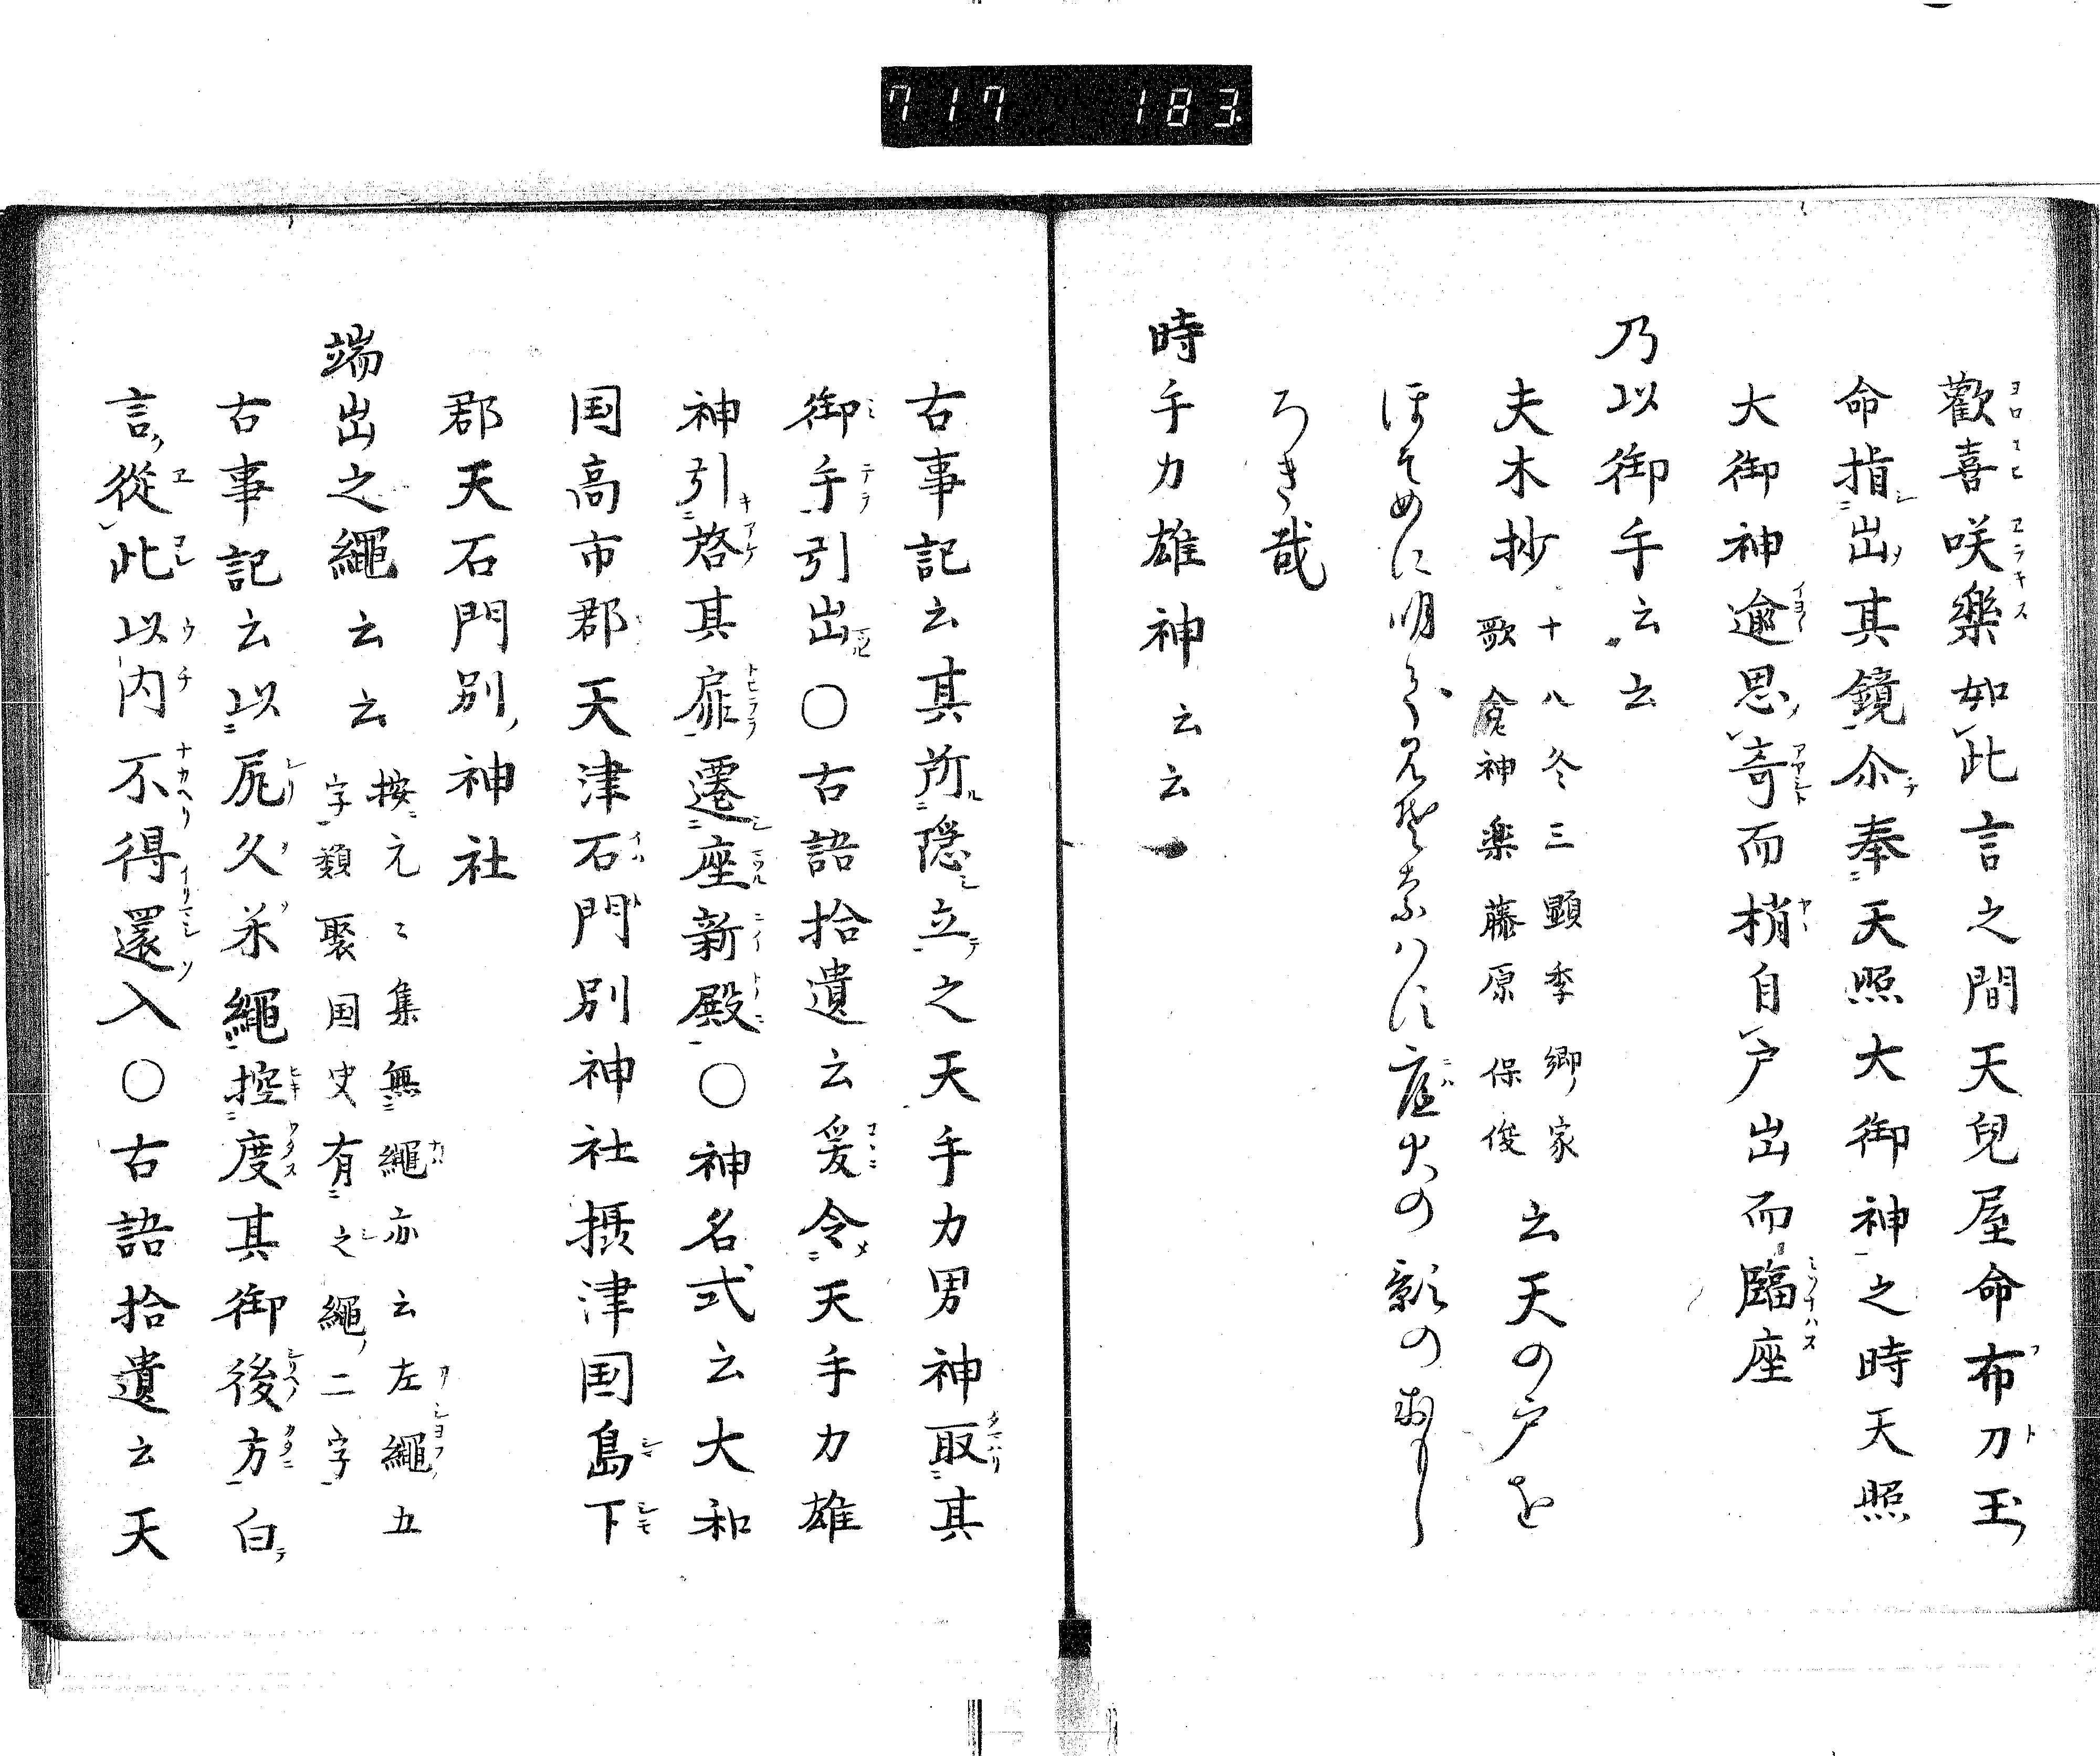 717 183.
歡喜咲樂如此言之間天兒屋命布刀玉
命指出其鏡尒奉天照大御神之時天照
大御神逾思奇而梢自戸出而臨座
乃以御手云云
夫木抄十八冬三顕季卿家
歌合神楽藤原保俊云天の戸を
ほそめに明て
庭火の影の
ろき哉
時手力雄神云云
古事記云其所隠立之天手力男神取其
御手引出〇古語拾遺云爰令天手力雄
神引啓其扉遷座新殿〇神名式云大和
国高市郡天津石門別神社摂津国島下
郡天石門別神社
端出之繩云云按元々集無繩亦云左繩五
字類聚国史有之繩二字
古事記云以尻久米繩控度其御後方白
言從此以内不得還入〇古語拾遺云天